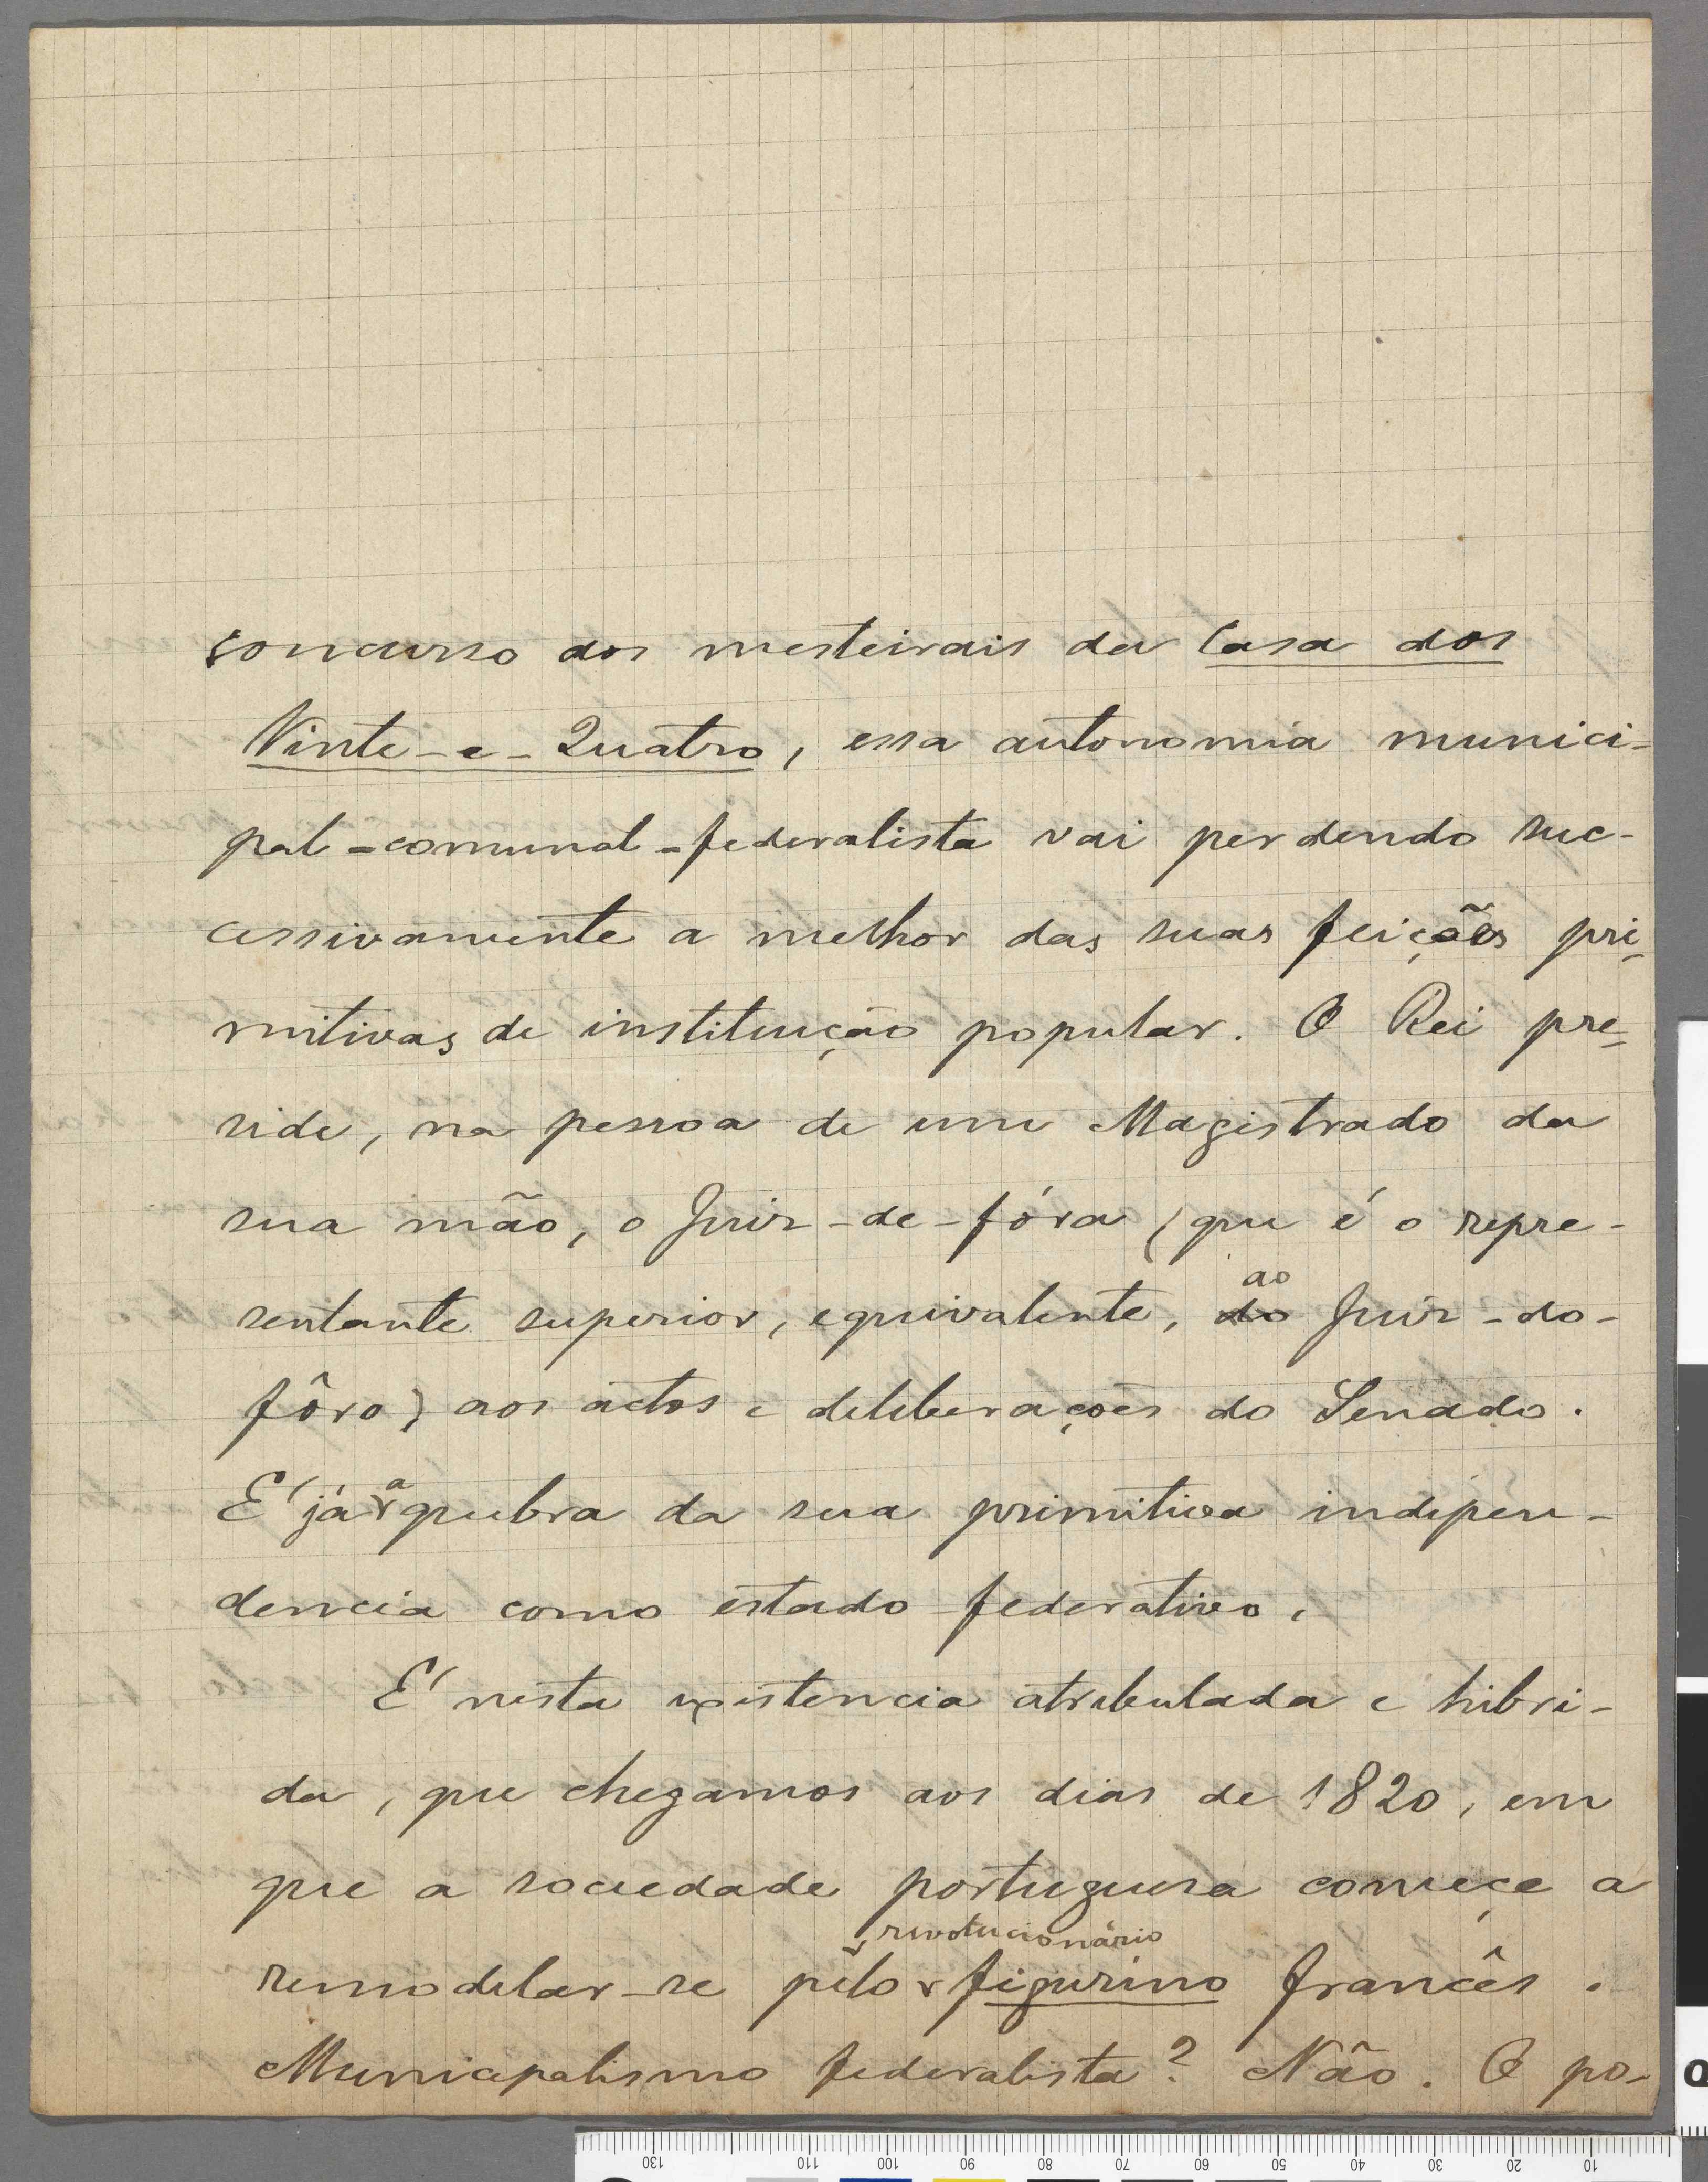 concurso dos mesteirais da Casa dos
Vinte-e-Quatro, essa autonomia munici-
pal-comunal-federalista vai perdendo suc-
cessivamente a melhor das suas feições pri-
mitivas de instituição popular. O Rei pre-
side, na pessoa de um Magistrado da
sua mão, o Juiz-de-fóra (que é o repre-
sentante superior, equivalente, do ao Juiz-do-
fôro) aos actos e deliberações do Senado.
E' já a quebra da sua primitiva indepen-
dencia como estado federativo.
E' nesta existencia atribulada e hibri-
da, que chegamos aos dias de 1820, em
que a sociedade portuguesa começa a
remodelar-se pelo revolucionário figurino francês.
Municipalismo federalista? Não. O po-
130 110 100 90 80 70 60 50 40 30 20 10